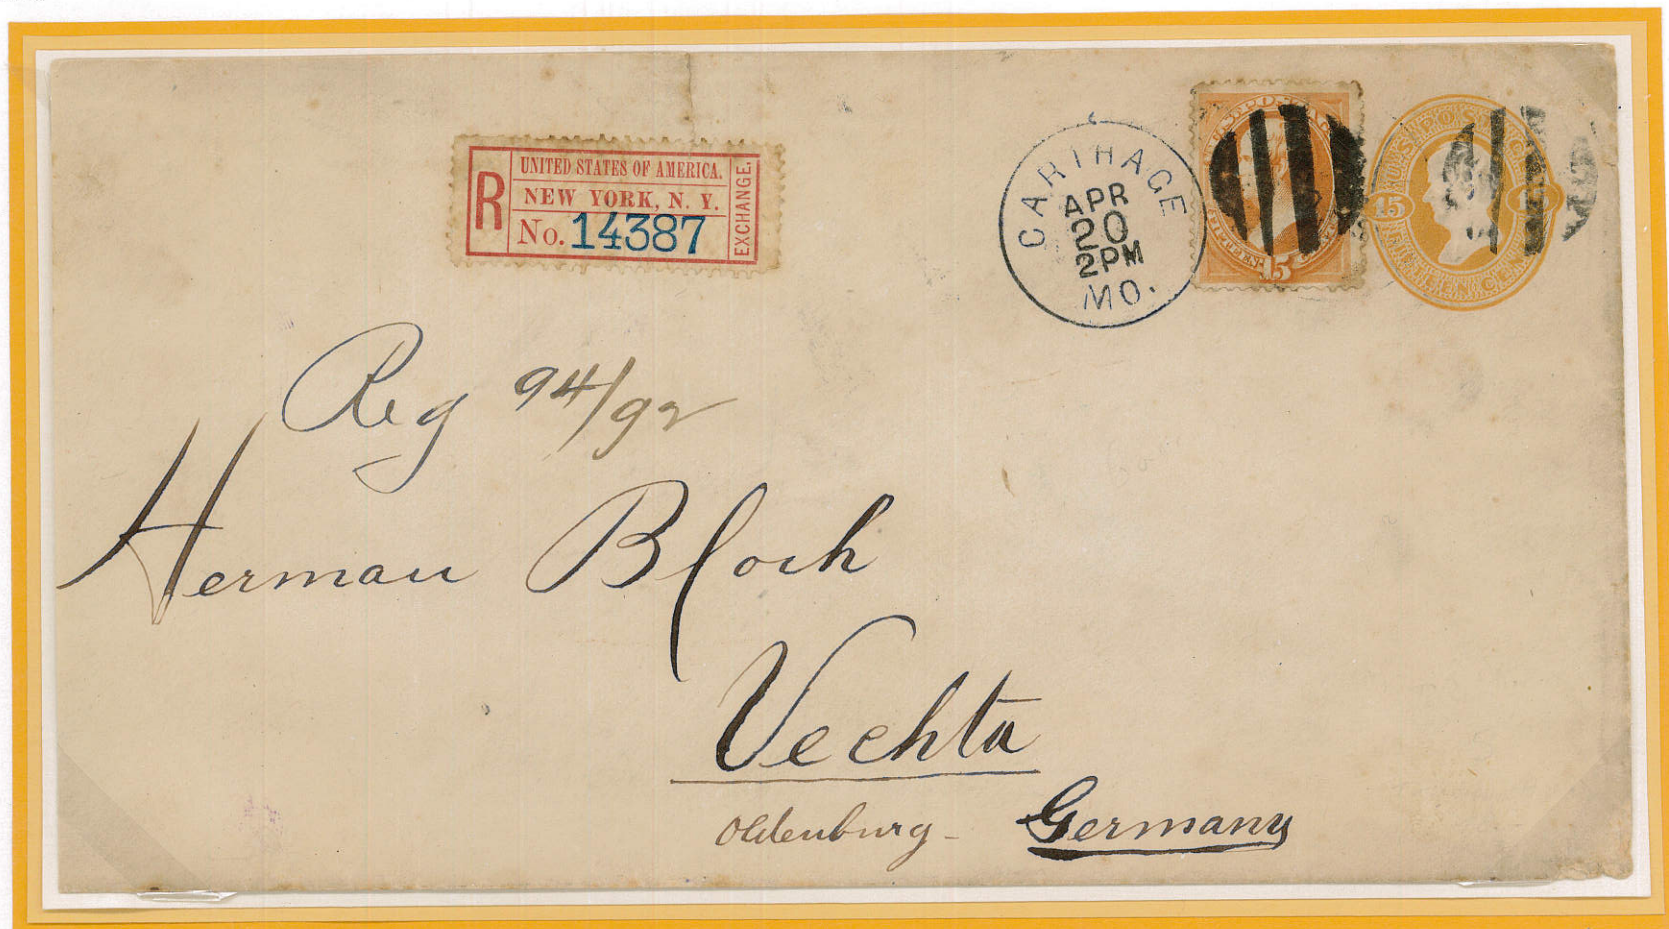 UNITED STATES OF AMERICA.
R NEW YORK, N. Y. EXCHANGE.
No. 14387
CARTHAGE
APR
20
2PM
MO.
U.S. POSTAGE
15
U.S. POSTAGE
15 15
FIFTEEN CENTS
Reg 94/92
Herman Bloch
Vechta
Oldenburg - Germany